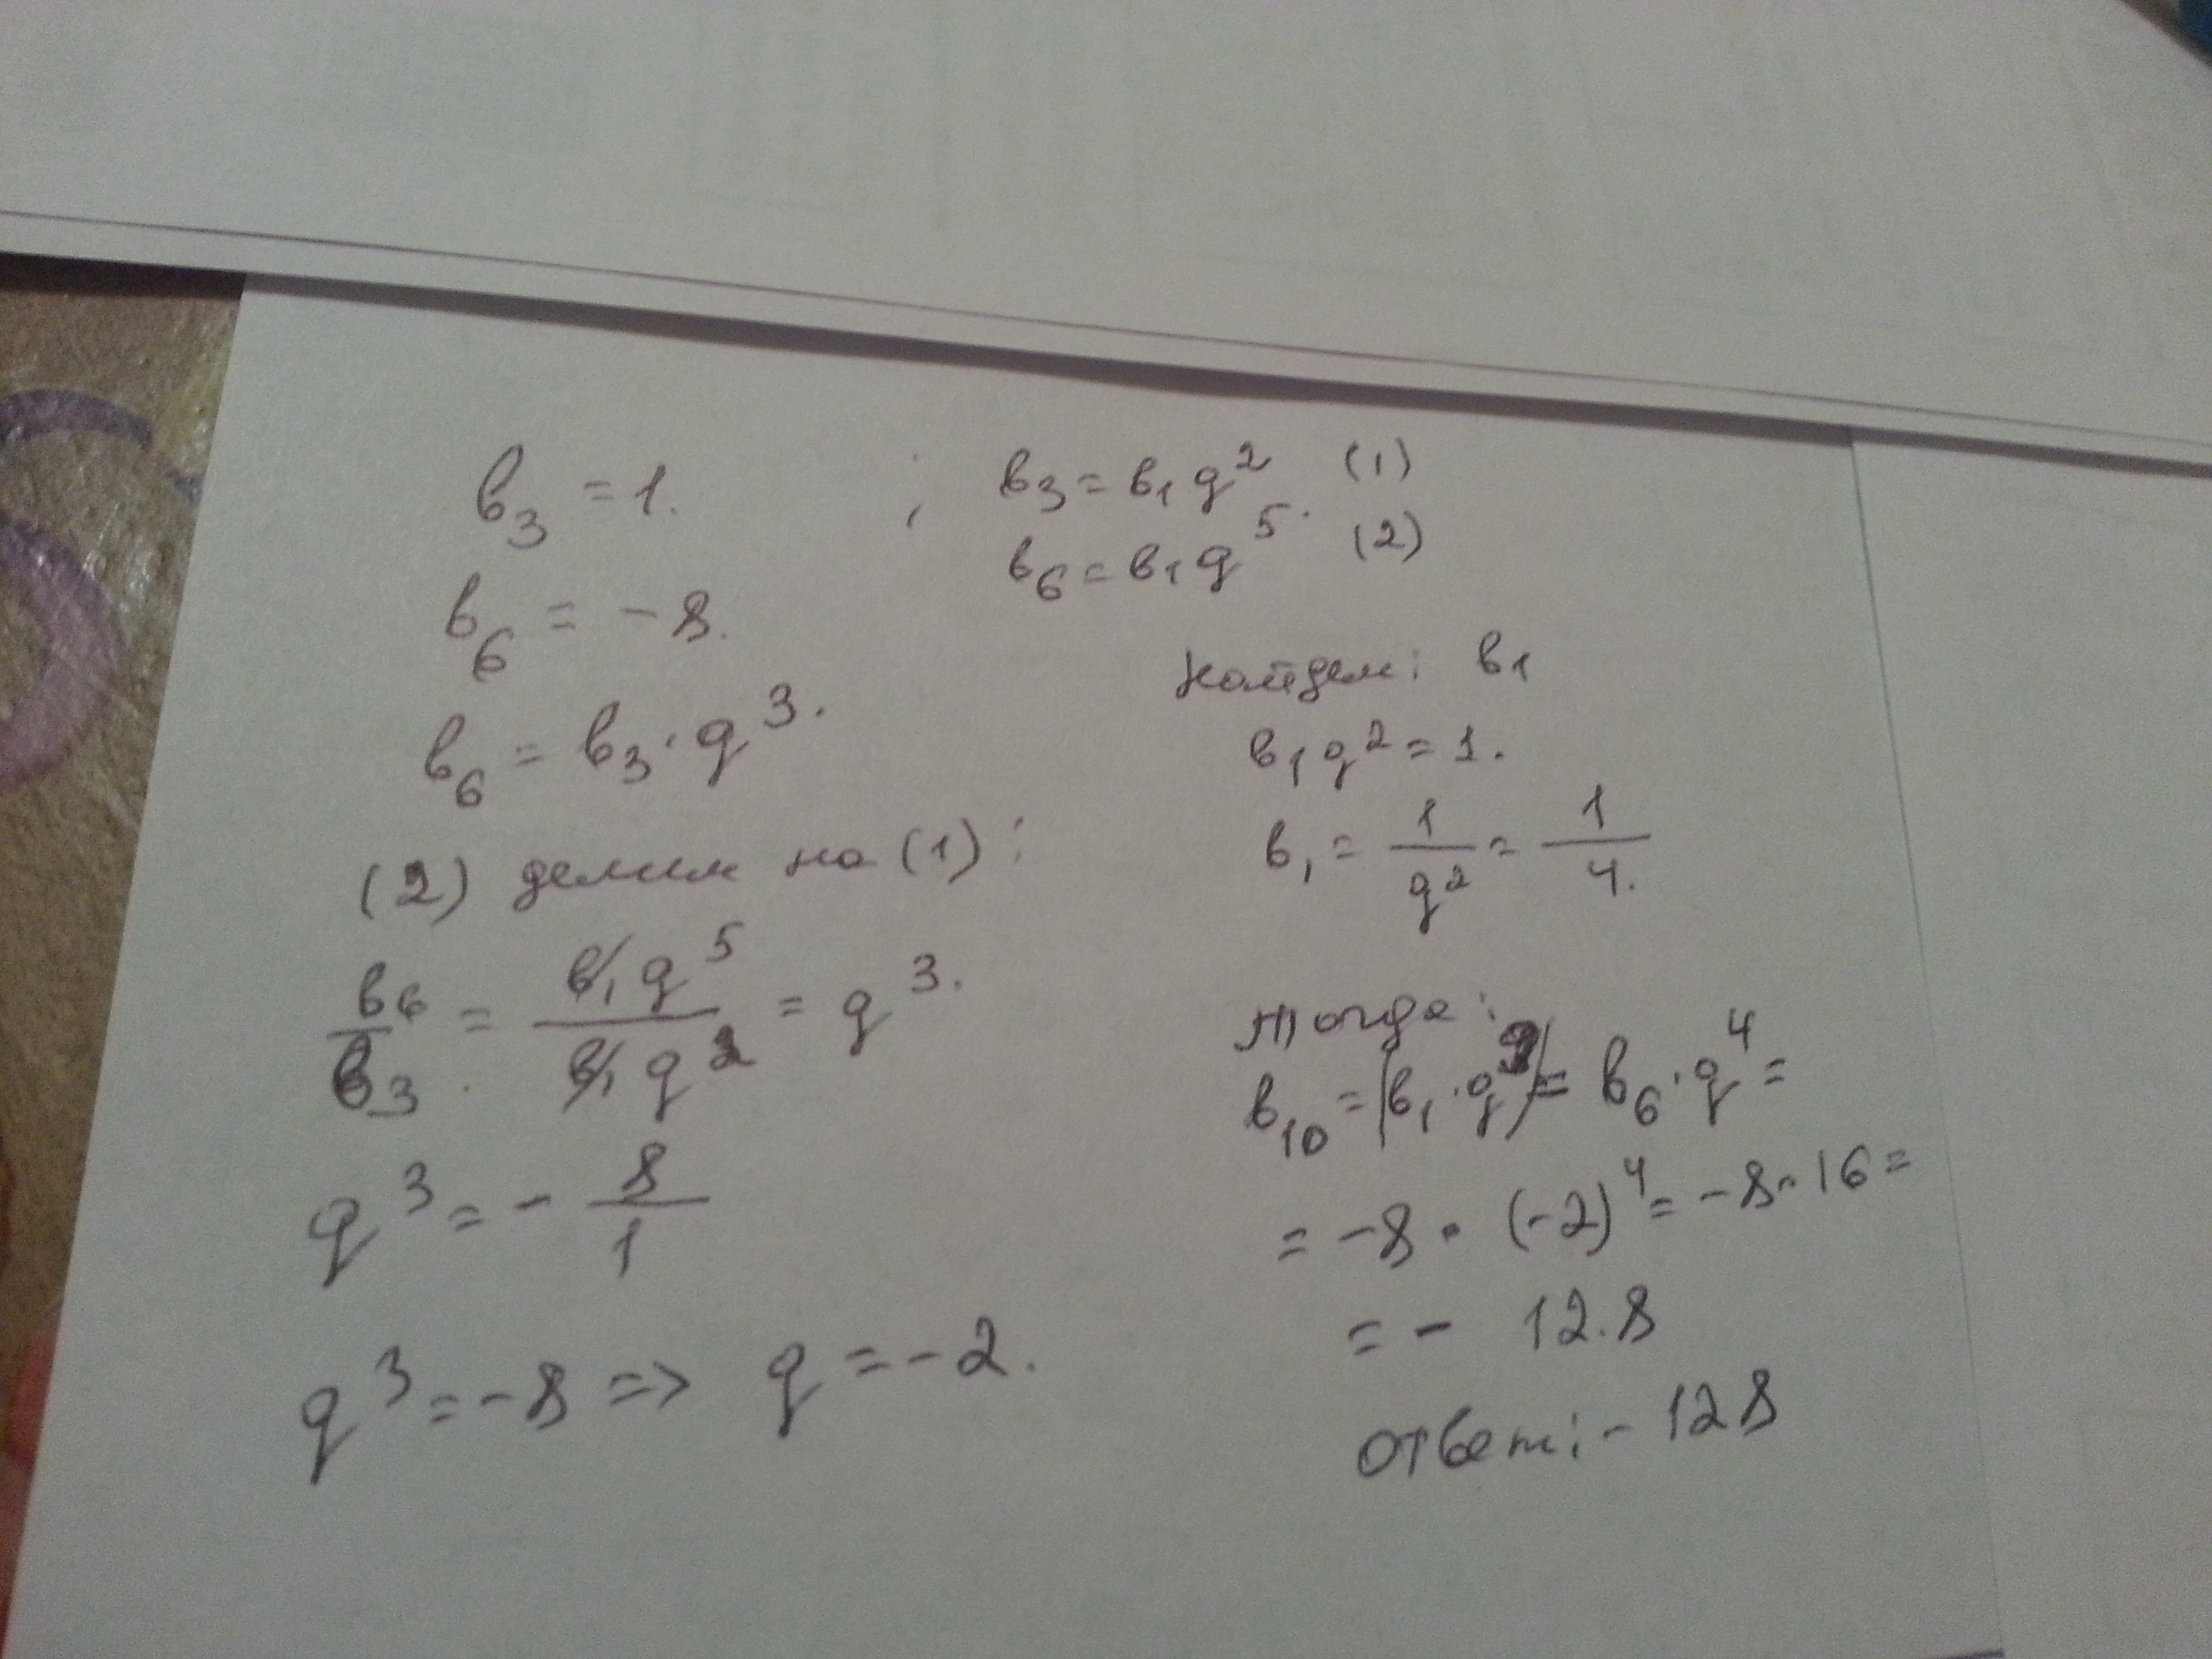 в₃ = 1.
в₆ = -8.
в₆ = в₃ · q³.
(2) делим на (1):
в₆/в₃ = в₁q⁵/в₁q² = q³.
q³ = - 8/1
q³ = -8 => q = -2.
; в₃ = в₁q² (1)
в₆ = в₁q⁵. (2)
Найдем: в₁
в₁q² = 1.
в₁ = 1/q² = 1/4.
Тогда:
в₁₀ = (в₁ · q⁹) = в₆ · q⁴ =
= -8 · (-2)⁴ = -8 · 16 =
= - 12.8
ответ: - 128